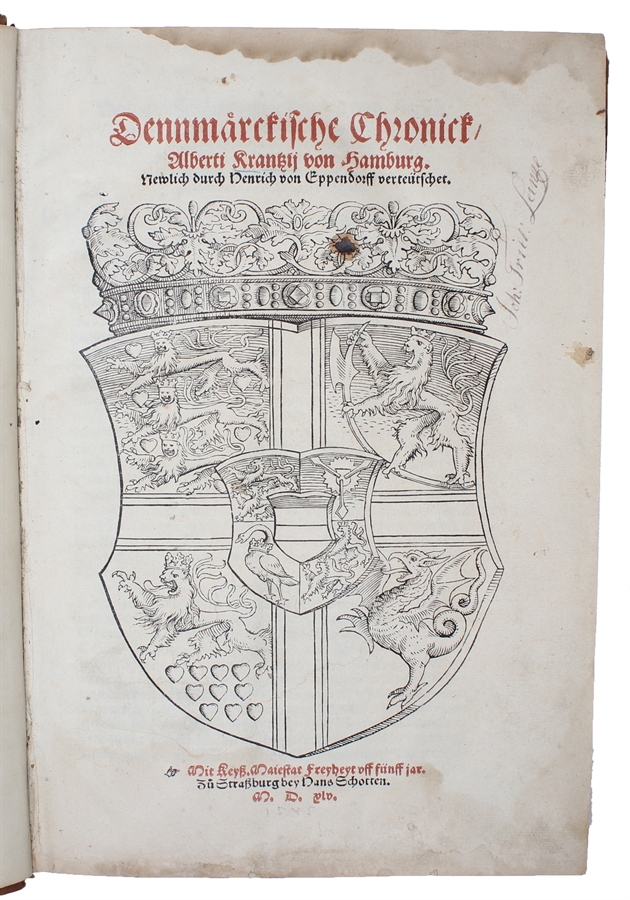 Dennmårckische Chronick/
Alberti Krantzij von Hamburg.
Newlich durch Henrich von Eppendorff verteütschet.
Mit Keyß. Maiestat Freyheyt vff fünff jar.
Zů Straßburg bey Hans Schotten.
M. D. xlv.